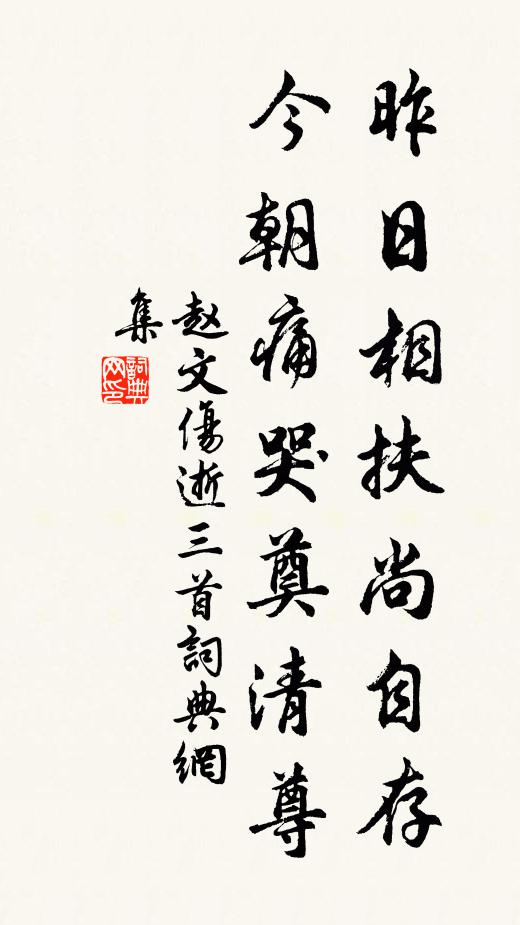 昨日相扶尚自存
今朝痛哭奠清尊
赵文傷逝三首詞典網
集
詞典网印